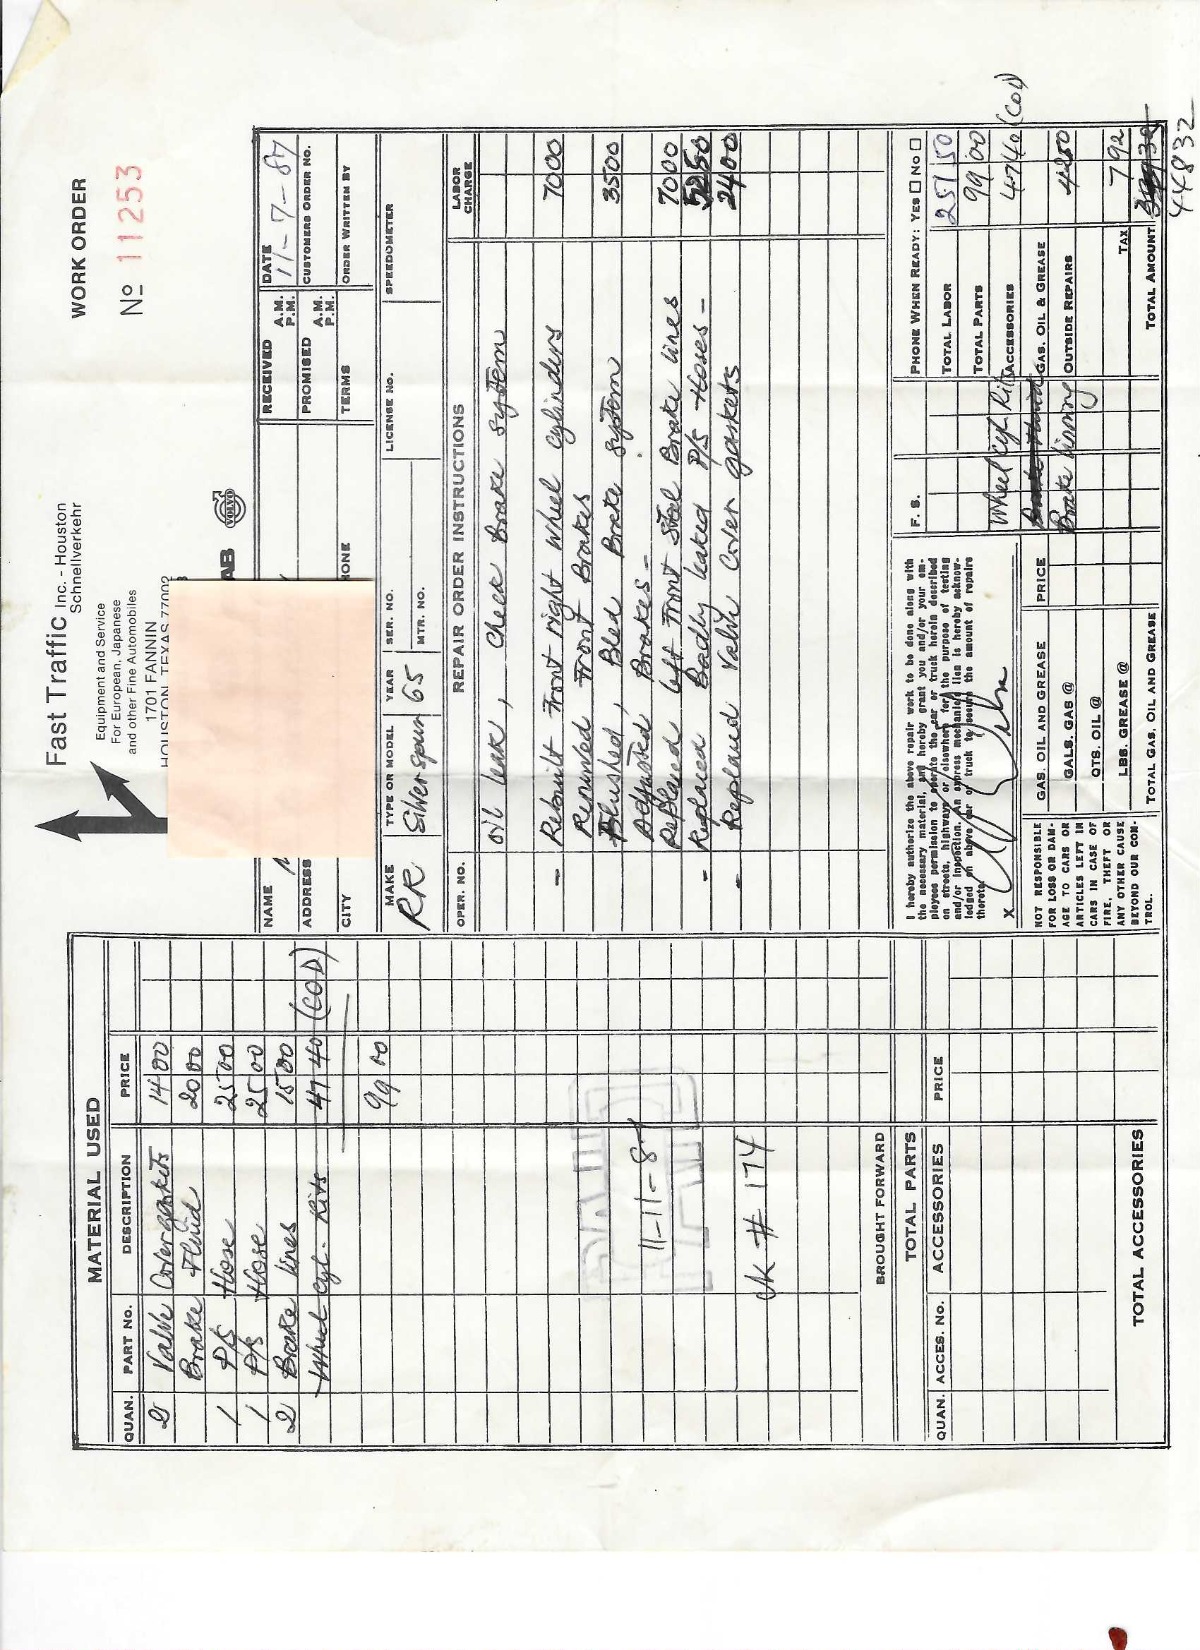 Fast Traffic Inc. - Houston
Schnellverkehr
Equipment and Service
For European, Japanese
and other Fine Automobiles
1701 FANNIN
HOUSTON, TEXAS 77002
VOLVO
WORK ORDER
No 11253
NAME
RECEIVED A.M. P.M.
DATE 11-7-87
ADDRESS
PROMISED A.M. P.M.
CUSTOMERS ORDER No.
CITY
TERMS
ORDER WRITTEN BY
MAKE RR
TYPE OR MODEL Silverspur
YEAR 65
SER. NO.
MTR. NO.
LICENSE NO.
SPEEDOMETER
OPER. NO. REPAIR ORDER INSTRUCTIONS LABOR CHARGE
oil leak, Check Brake System
- Rebuilt Front right wheel cylinders 7000
Rerunned Front Brakes
Flushed, Bleed Brake System 3500
Adjusted Brakes -
Replaced left Front Steel Brake lines 7000
- Replaced Badly leaked P/S Hoses - 5250
- Replaced Valve Cover gaskets 2400
I hereby authorize the above repair work to be done along with
the necessary material, and hereby grant you and/or your em-
ployees permission to operate the car or truck herein described
on streets, highways or elsewhere for the purpose of testing
and/or inspection. An express mechanic's lien is hereby acknow-
ledged on above car or truck to secure the amount of repairs
thereto.
X
NOT RESPONSIBLE
FOR LOSS OR DAM-
AGE TO CARS OR
ARTICLES LEFT IN
CARS IN CASE OF
FIRE, THEFT OR
ANY OTHER CAUSE
BEYOND OUR CON-
TROL.
GAS. OIL AND GREASE PRICE
GALS. GAS @
QTS. OIL @
LBS. GREASE @
TOTAL GAS, OIL AND GREASE
F. S.
PHONE WHEN READY: YES NO
TOTAL LABOR 251 50
TOTAL PARTS 99 00
Wheel cyl Kits ACCESSORIES 47 40 (COD)
GAS, OIL & GREASE
Brake lining OUTSIDE REPAIRS 42 50
TAX 7 92
TOTAL AMOUNT
448 32
MATERIAL USED
QUAN. PART No. DESCRIPTION PRICE
2 Valve Cover gaskets 14 00
Brake Fluid 20 00
1 P/S Hose 25 00
1 P/S Hose 25 00
2 Brake lines 15 00
Wheel Cyl. Kits 47 40 (COD)
99 00
PAID
11-11-87
CK # 174
BROUGHT FORWARD
TOTAL PARTS
QUAN. ACCES. No. ACCESSORIES PRICE
TOTAL ACCESSORIES